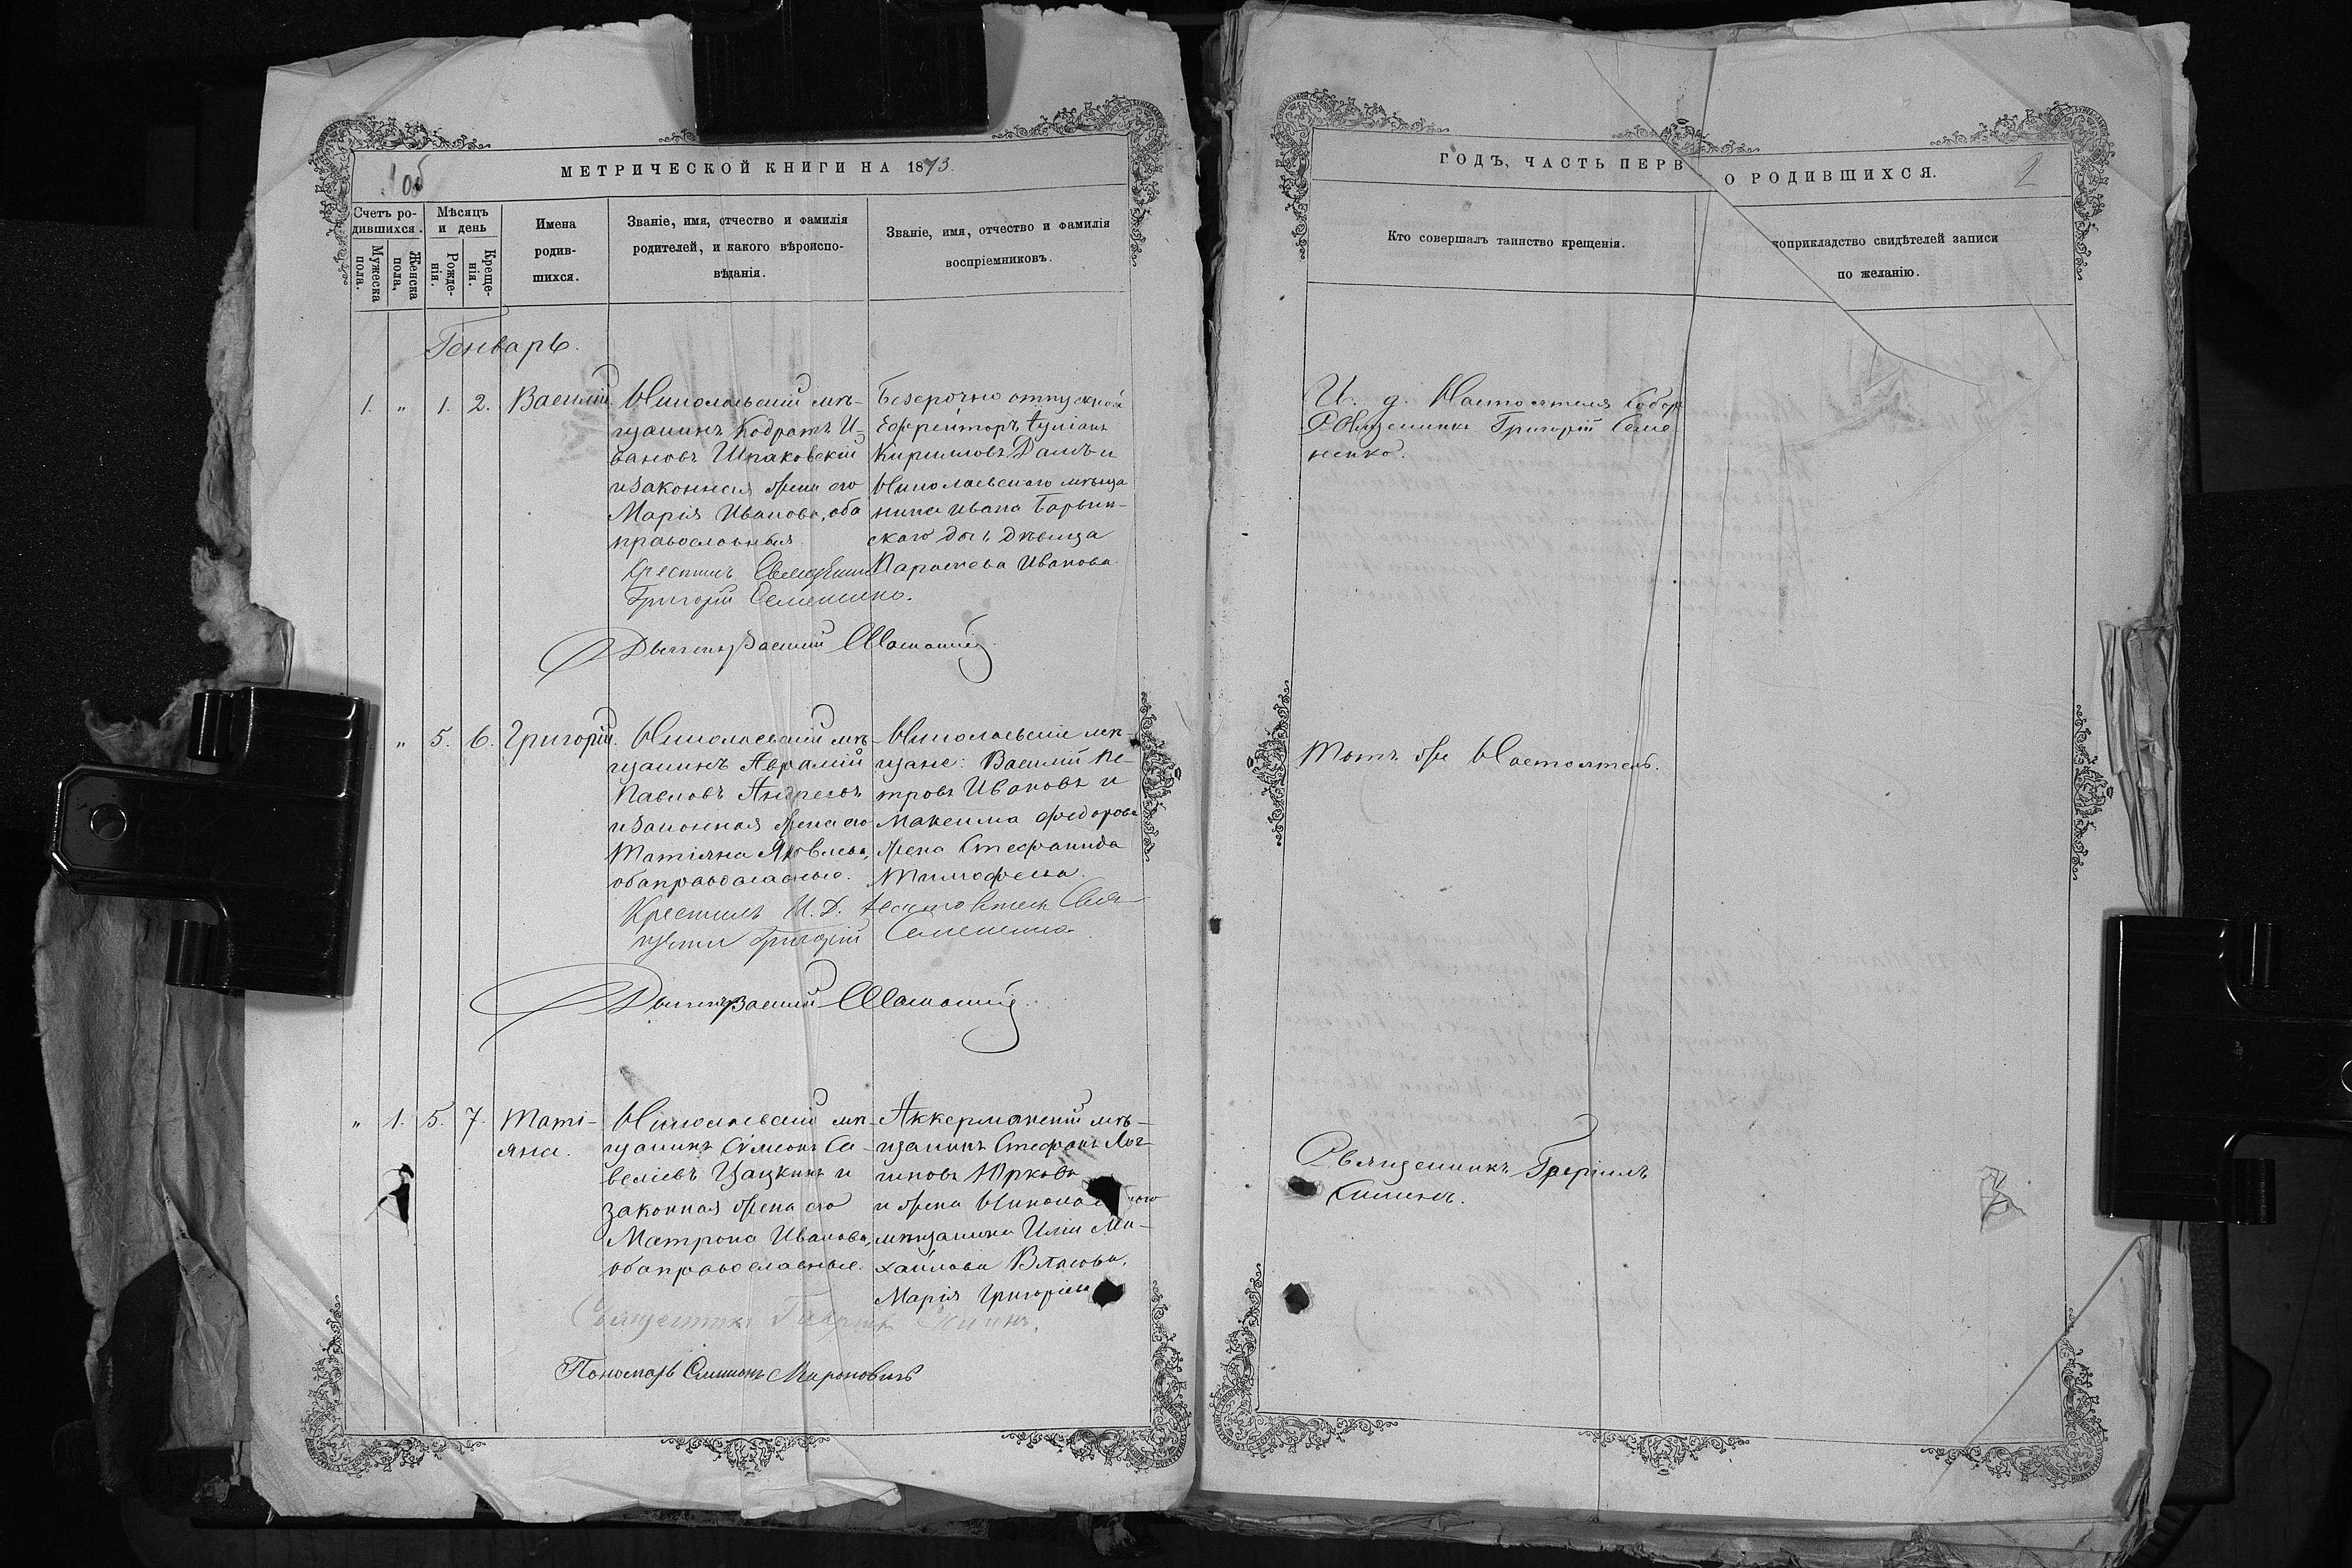 1об
МЕТРИЧЕСКОЙ КНИГИ НА 1873.
Счетъ ро-
дившихся.
Мужеска
пола.
Женска
пола.
Мѣсяцъ
и день
Рожде-
нія.
Креще-
нія.
Имена
родив-
шихся.
Званіе, имя, отчество и фамилія
родителей, и какого вѣроиспо-
вѣданія.
Званіе, имя, отчество и фамилія
воспріемниковъ.
Генварь.
1. " 1. 2. Василій.
Николаевскій мѣ-
щанинъ Кодратъ И-
вановъ Шпаковскій
и законная жена его
Марія Иванова, оба
православныя.
Безсрочно отпускной
Ефрейторъ
Кирилловъ и
Николаевскаго мѣща
нина Ивана
скаго дочь дѣвица
Параскева Иванова.
Крестилъ Священник
Григорій Семененко.
Василій
" 5. 6. Григорій.
Николаевскій мѣ-
щанинъ Аврамій
Павловъ Андреевъ
и законная жена его
Татіяна Яковлева,
оба православные.
Николаевскіе мѣ-
щане: Василій Пе-
тровъ Ивановъ и
Максима Федорова
жена Стефанида
Тимофеева.
Крестилъ И. Д. Настоятеля Свя-
щенни Григорій Семененко
Василій
" 1. 5. 7. Таті-
яна.
Николаевскій мѣ-
щанинъ Симеонъ Са-
веліевъ Цацкинъ и
законная жена его
Матрона Иванова,
оба православные.
Аккерманскій мѣ-
щанинъ Стефанъ Лог-
гиновъ Юрковъ
и жена Никола наго
мѣщанина Иліи Ми-
хайлова Власова,
Марія Григоріева
Священникъ Гавріилъ Силинъ.
Пономарь Симеонъ Мироновичъ
ГОДЪ, ЧАСТЬ ПЕРВ
О РОДИВШИХСЯ.
2
Кто совершалъ таинство крещенія.
коприкладство свидѣтелей записи
по желанію.
И. д. Настоятеля Собор
Священникъ Григорій Семе
ненко.
Тотъ же Настоятель.
Священникъ Гавріилъ
Силинъ.